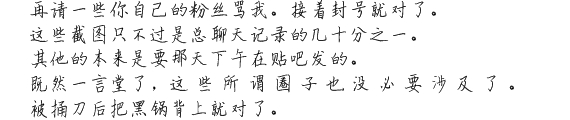 再请一些你自己的粉丝骂我。接着封号就对了。
这些截图只不过是总聊天记录的几十分之一。
其他的本来是要那天下午在贴吧发的。
既然一言堂了，这些所谓圈子也没必要涉及了。
被捅刀后把黑锅背上就对了。